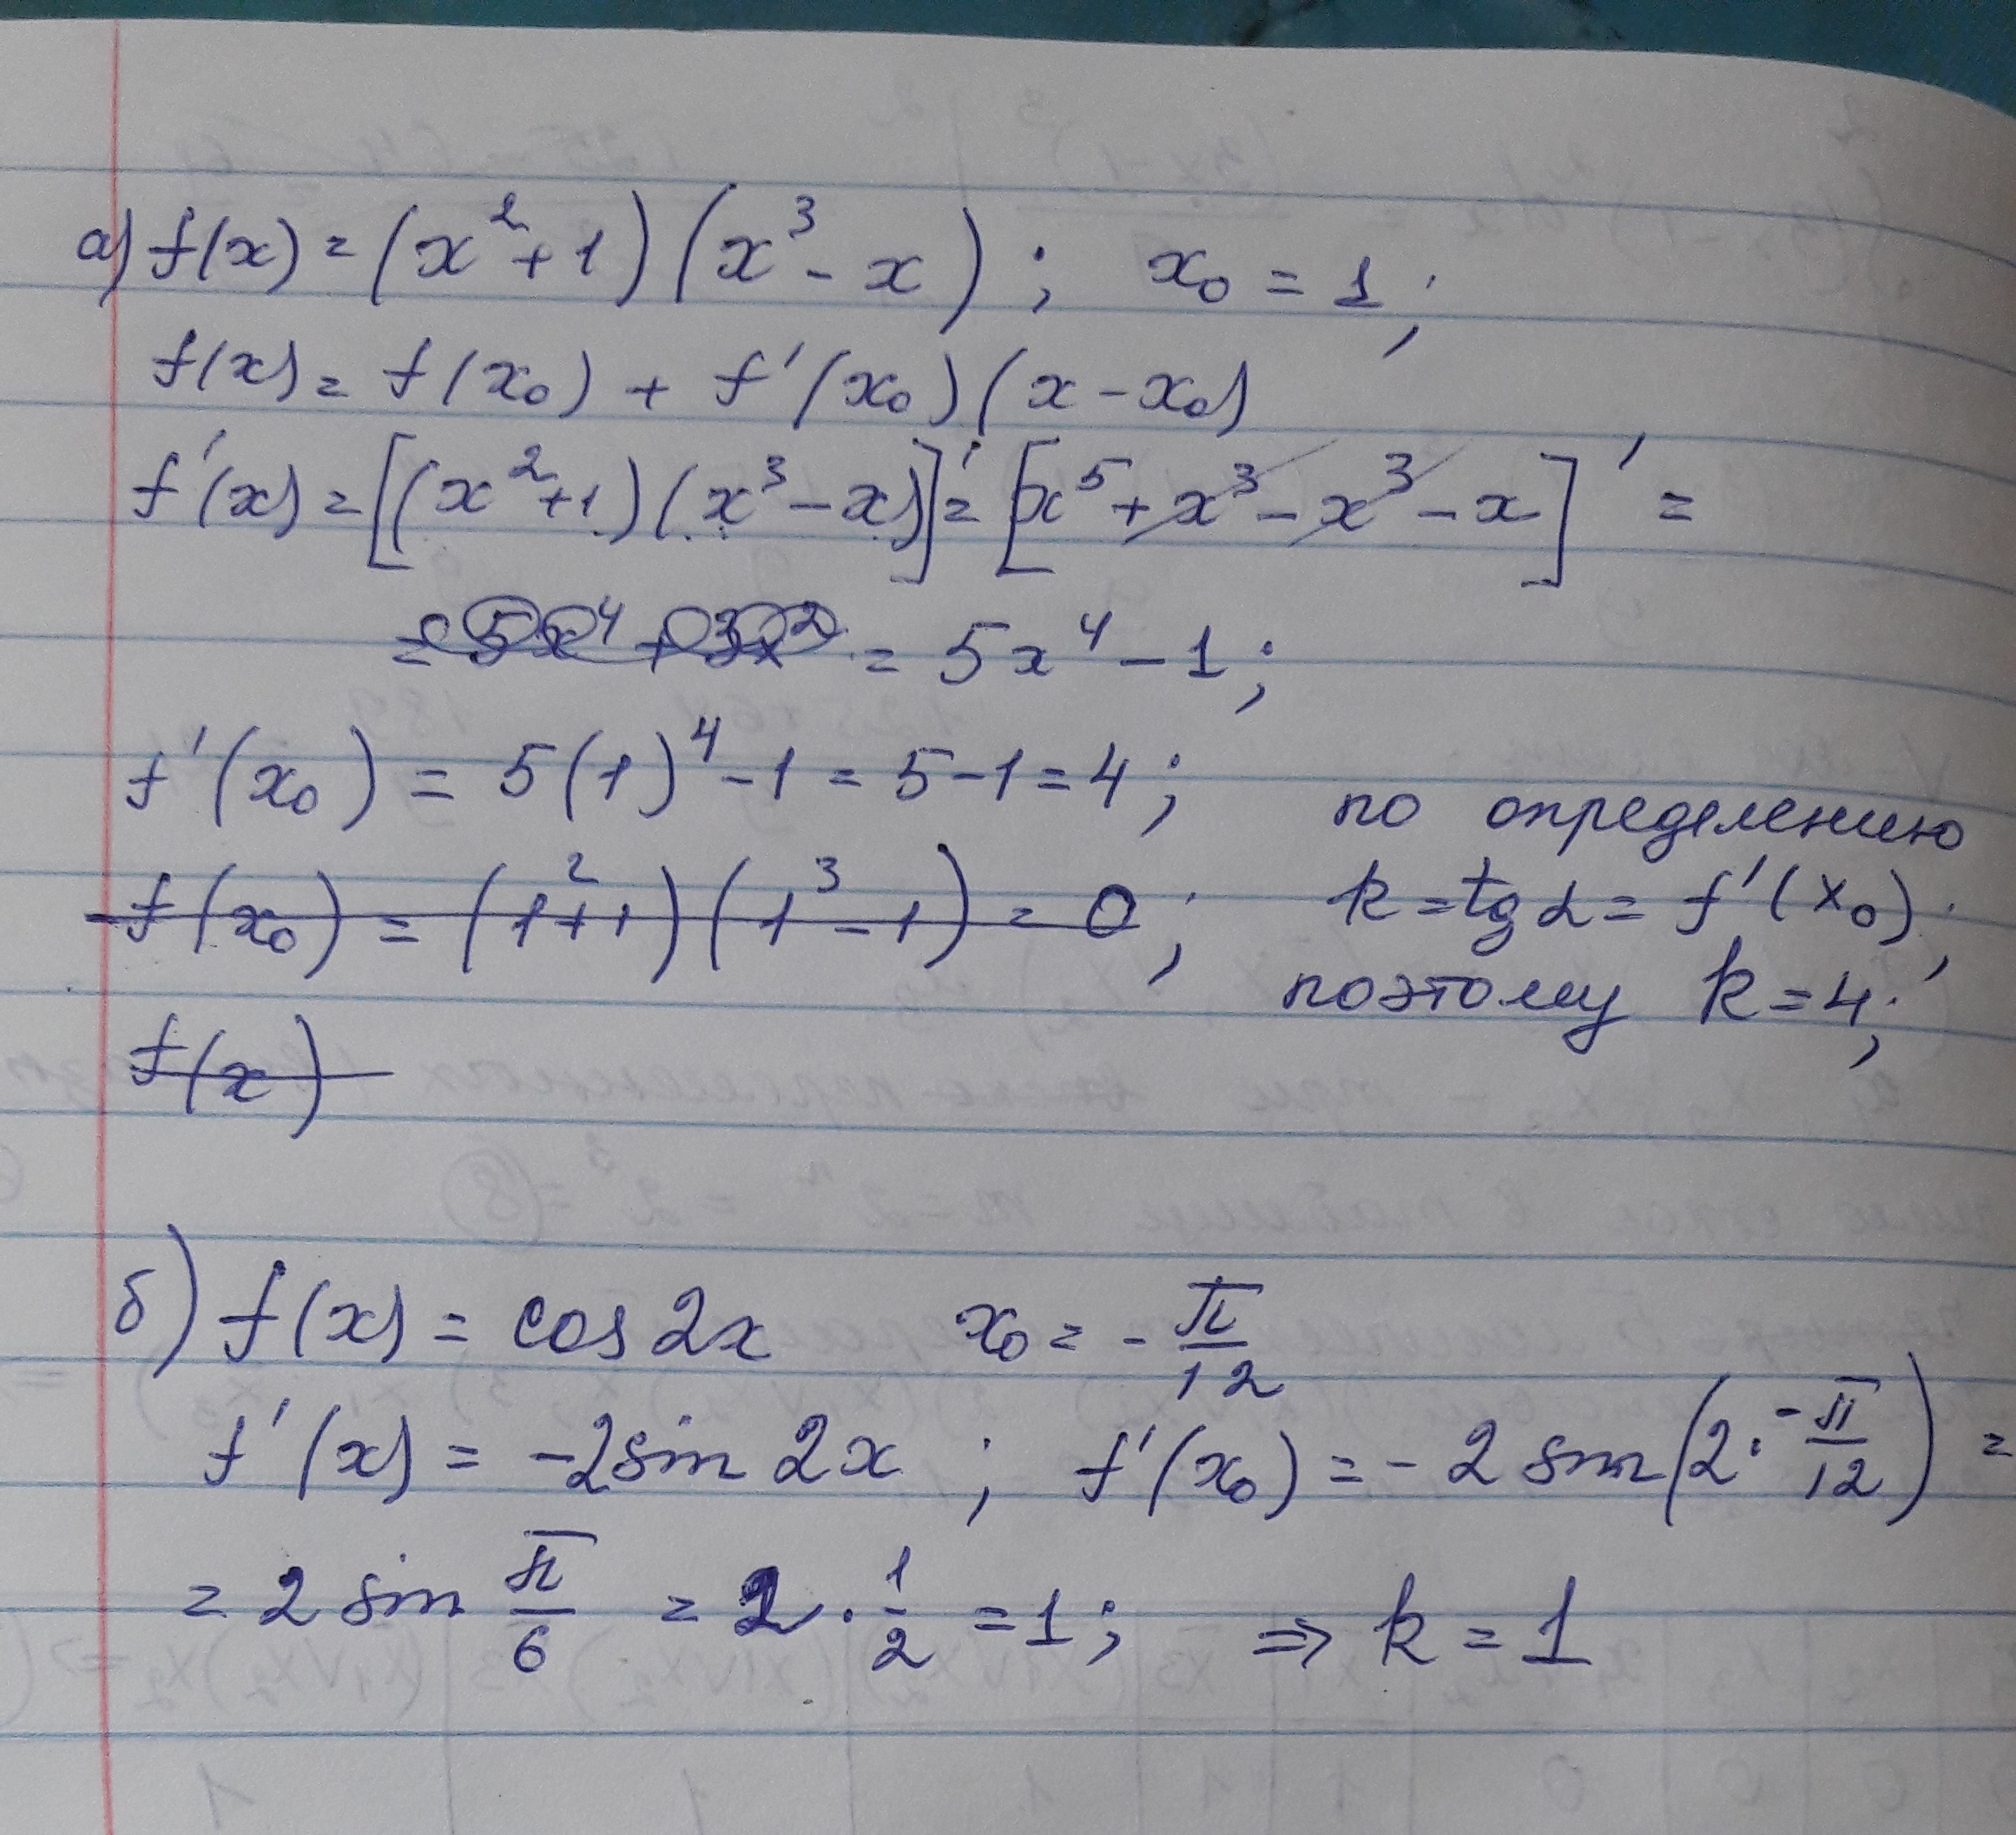 а) f(x) = (x²+1)(x³-x); x₀ = 1;
f(x) = f(x₀) + f'(x₀)(x-x₀)
f'(x) = [(x²+1)(x³-x)]' = [x⁵+x³-x³-x]' =
= 5x⁴+3x² = 5x⁴-1;
f'(x₀) = 5(1)⁴-1 = 5-1 = 4;
по определению
f(x₀) = (1²+1)(1³-1) = 0;
k = tg α = f'(x₀);
поэтому k = 4;
f(x)
б) f(x) = cos 2x x₀ = -π/12
f'(x) = -2sin 2x; f'(x₀) = -2 sin(2·-π/12) =
= 2 sin π/6 = 2·1/2 = 1; ⇒ k = 1